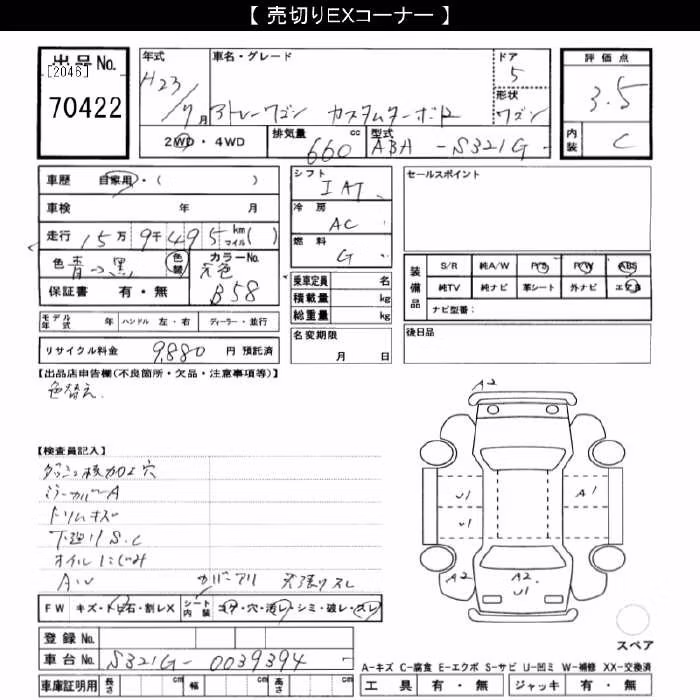 【 売切りEXコーナー 】
出品No. [2046] 70422
年式 H23/7月
車名・グレード アトレーワゴン カスタムターボR
ドア 5
形状 ワゴン
評価点 3.5
内装 C
2WD・4WD
排気量 660 cc
型式 ABA - S321G -
車歴 自家用・( )
車検 年 月
走行 15万9千495 km マイル( )
色 青つ黒 色替
カラーNo. 元色 B58
保証書 有・無
モデル年式 年 ハンドル 左・右 ディーラー・並行
リサイクル料金 9,880 円 預託済
シフト IAT
冷房 AC
燃料 G
乗車定員 名
積載量 kg
総重量 kg
名変期限 月 日
セールスポイント
装備品
S/R 純A/W P/S P/W ABS
純TV 純ナビ 革シート 外ナビ エアB
ナビ型番:
後日品
【出品店申告欄(不良箇所・欠品・注意事項等)】
色替え.
【検査員記入】
ダッシュ板加工穴
ミラーカバーA
トリムキズ
下廻りS.C
オイルにじみ
AW カバーアリ 天張りヨレ
FW キズ・トビ石・割レX シート内装 コゲ・穴・汚レ・シミ・破レ・スレ
登録No.
車台No. S321G- 0039394 -
車庫証明用 長さ cm 幅 cm 高さ cm
A2
U1
U1
A1
A2
A2
U1
A2
スペア
A-キズ C-腐食 E-エクボ S-サビ U-凹ミ W-補修 XX-交換済
工具 有・無 ジャッキ 有・無